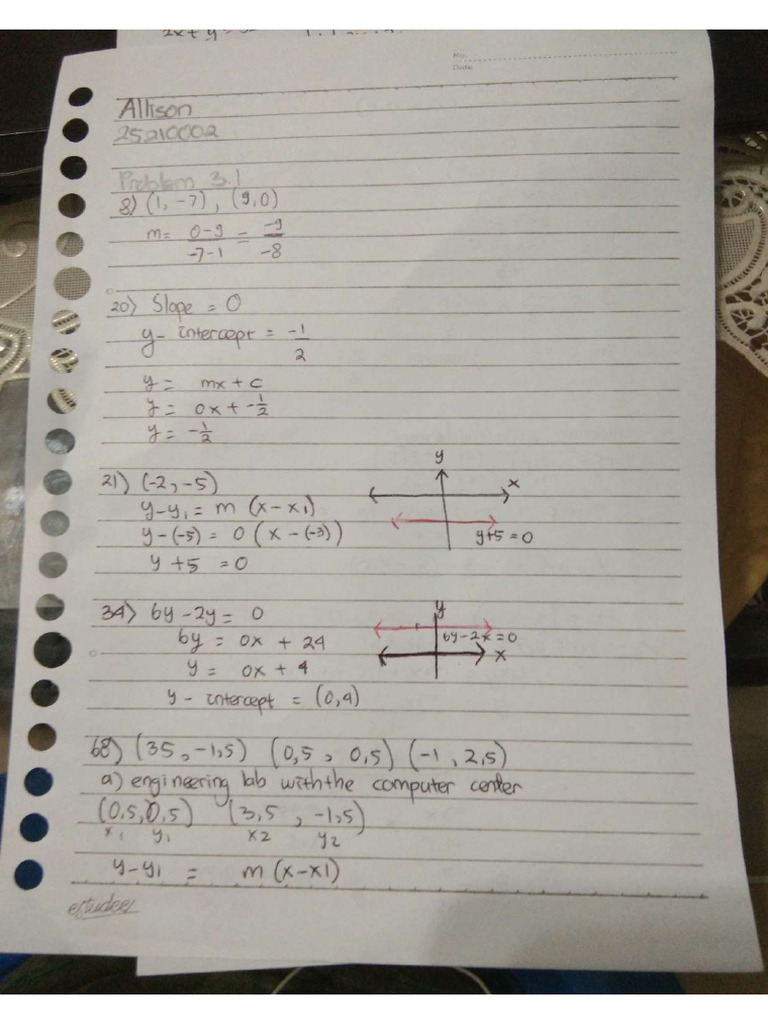 No:
Date:
Allison
25210002
Problem 3.1
8) (1, -7), (9,0)
m = 0-9 / -7-1 = -9 / -8
20) Slope = 0
y- intercept = -1/2
y = mx + c
y = 0x + -1/2
y = -1/2
21) (-2, -5)
y-y1 = m (x-x1)
y-(-5) = 0 (x-(-3))
y +5 = 0
y
x
y+5 = 0
34) 6y -2y = 0
6y = 0x + 24
y = 0x + 4
y - intercept = (0,4)
y
6y-2x=0
x
68) (35, -1,5) (0,5, 0,5) (-1, 2,5)
a) engineering lab with the computer center
(0,5,0,5) (3,5, -1,5)
x1 y1 x2 y2
y-y1 = m (x-x1)